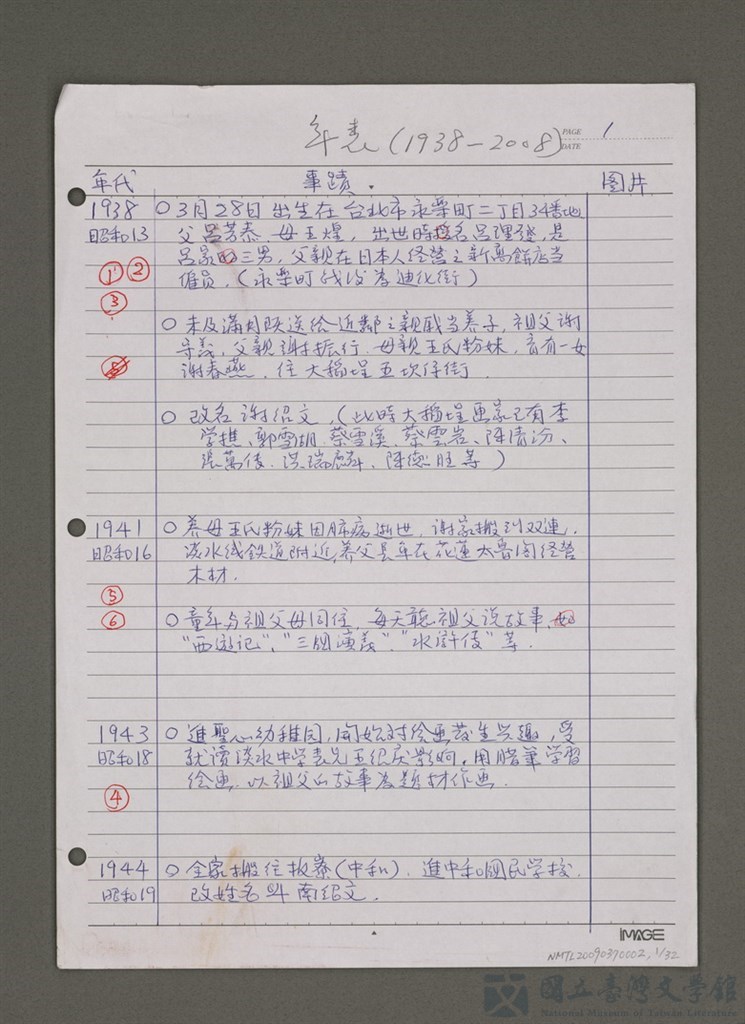 年表(1938-2008)
PAGE 1
DATE
年代 事蹟. 图片
1938 ○ 3月28日 出生在 台北市永楽町二丁目34番地
昭和13 父呂芳恭 母王燿, 出世時
名呂理發, 是
呂家 三男, 父親在日本人经营之新高餅店当
①② 僱員. (永楽町线後為迪化街)
③
○ 未及滿月 送给近鄰之親戚当养子, 祖父谢
父親謝振行. 母親王氏粉妹, 育有一女
谢春燕. 住大稻埕五坎仔街.
○ 改名谢绍文, (此時大稻埕画家已有李
学樵、郭雪胡、蔡雪溪、蔡雲岩、陈清汾、
張萬传、洪瑞麟、陳德旺等)
1941 ○ 养母王氏粉妹因肺病逝世, 谢家搬到双連.
昭和16 淡水线鉄道附近, 养父長年在花蓮太魯阁经营
木材.
⑤
⑥ ○ 童年与祖父母同住, 每天聽祖父说故事, 如
"西遊记", "三国演義", "水滸传"等.
1943 ○ 進聖心幼稚园, 開始对绘画發生兴趣, 受
昭和18 就读淡水中学表兄 影响, 用腊筆学習
绘画, 以祖父的故事為题材作画.
④
1944 ○ 全家搬往板寮(中和), 進中和國民学校,
昭和19 改姓名叫南绍文.
IMAGE
NMTL20090370002, 1/32
國立臺灣文學館
National Museum of Taiwan Literature